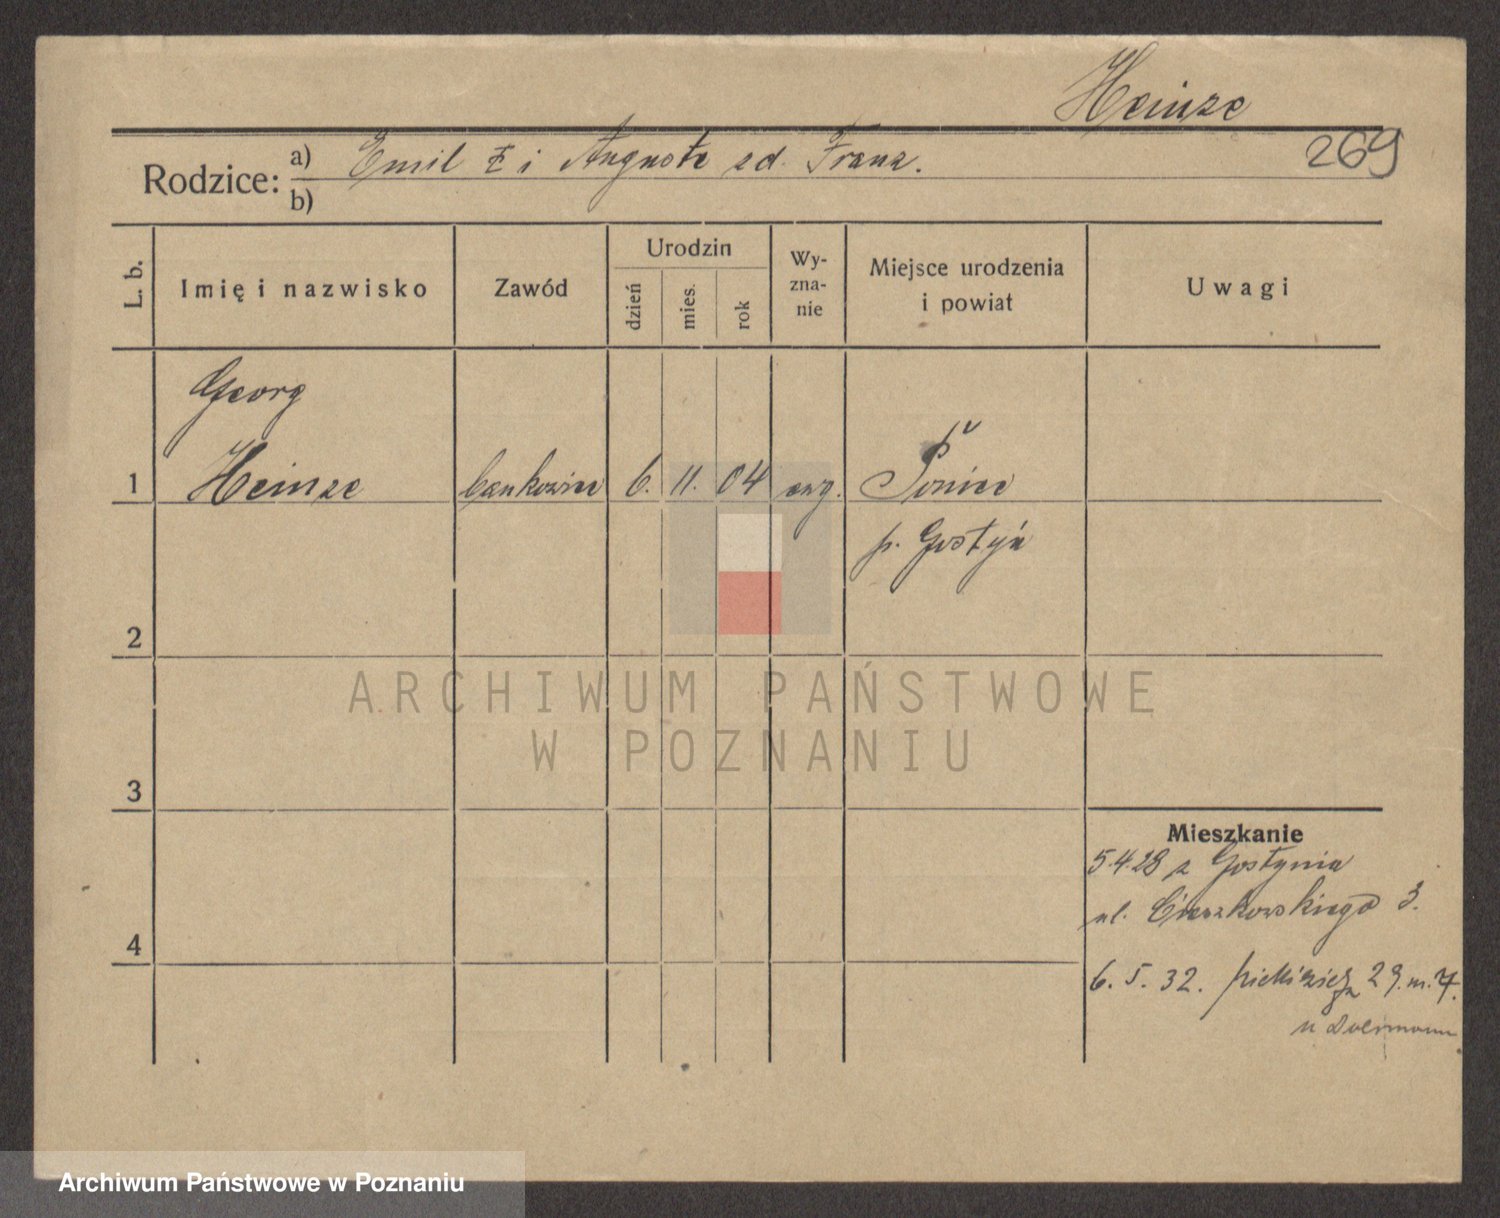 Heinze
269
Rodzice: a) Emil i Auguste zd. Franz.
b)
L. b.
Imię i nazwisko
Zawód
Urodzin
dzień
mies.
rok
Wy-
zna-
nie
Miejsce urodzenia
i powiat
Uwagi
Georg
1 Heinze bankowiec 6. 11. 04 ewg. Poniec
p. Gostyń
2
ARCHIWUM PAŃSTWOWE
W POZNANIU
3
Mieszkanie
5.4.28 z Gostynia
ul. Cieszkowskiego 3.
4
6. 5. 32. 29. m. 7.
u
Archiwum Państwowe w Poznaniu